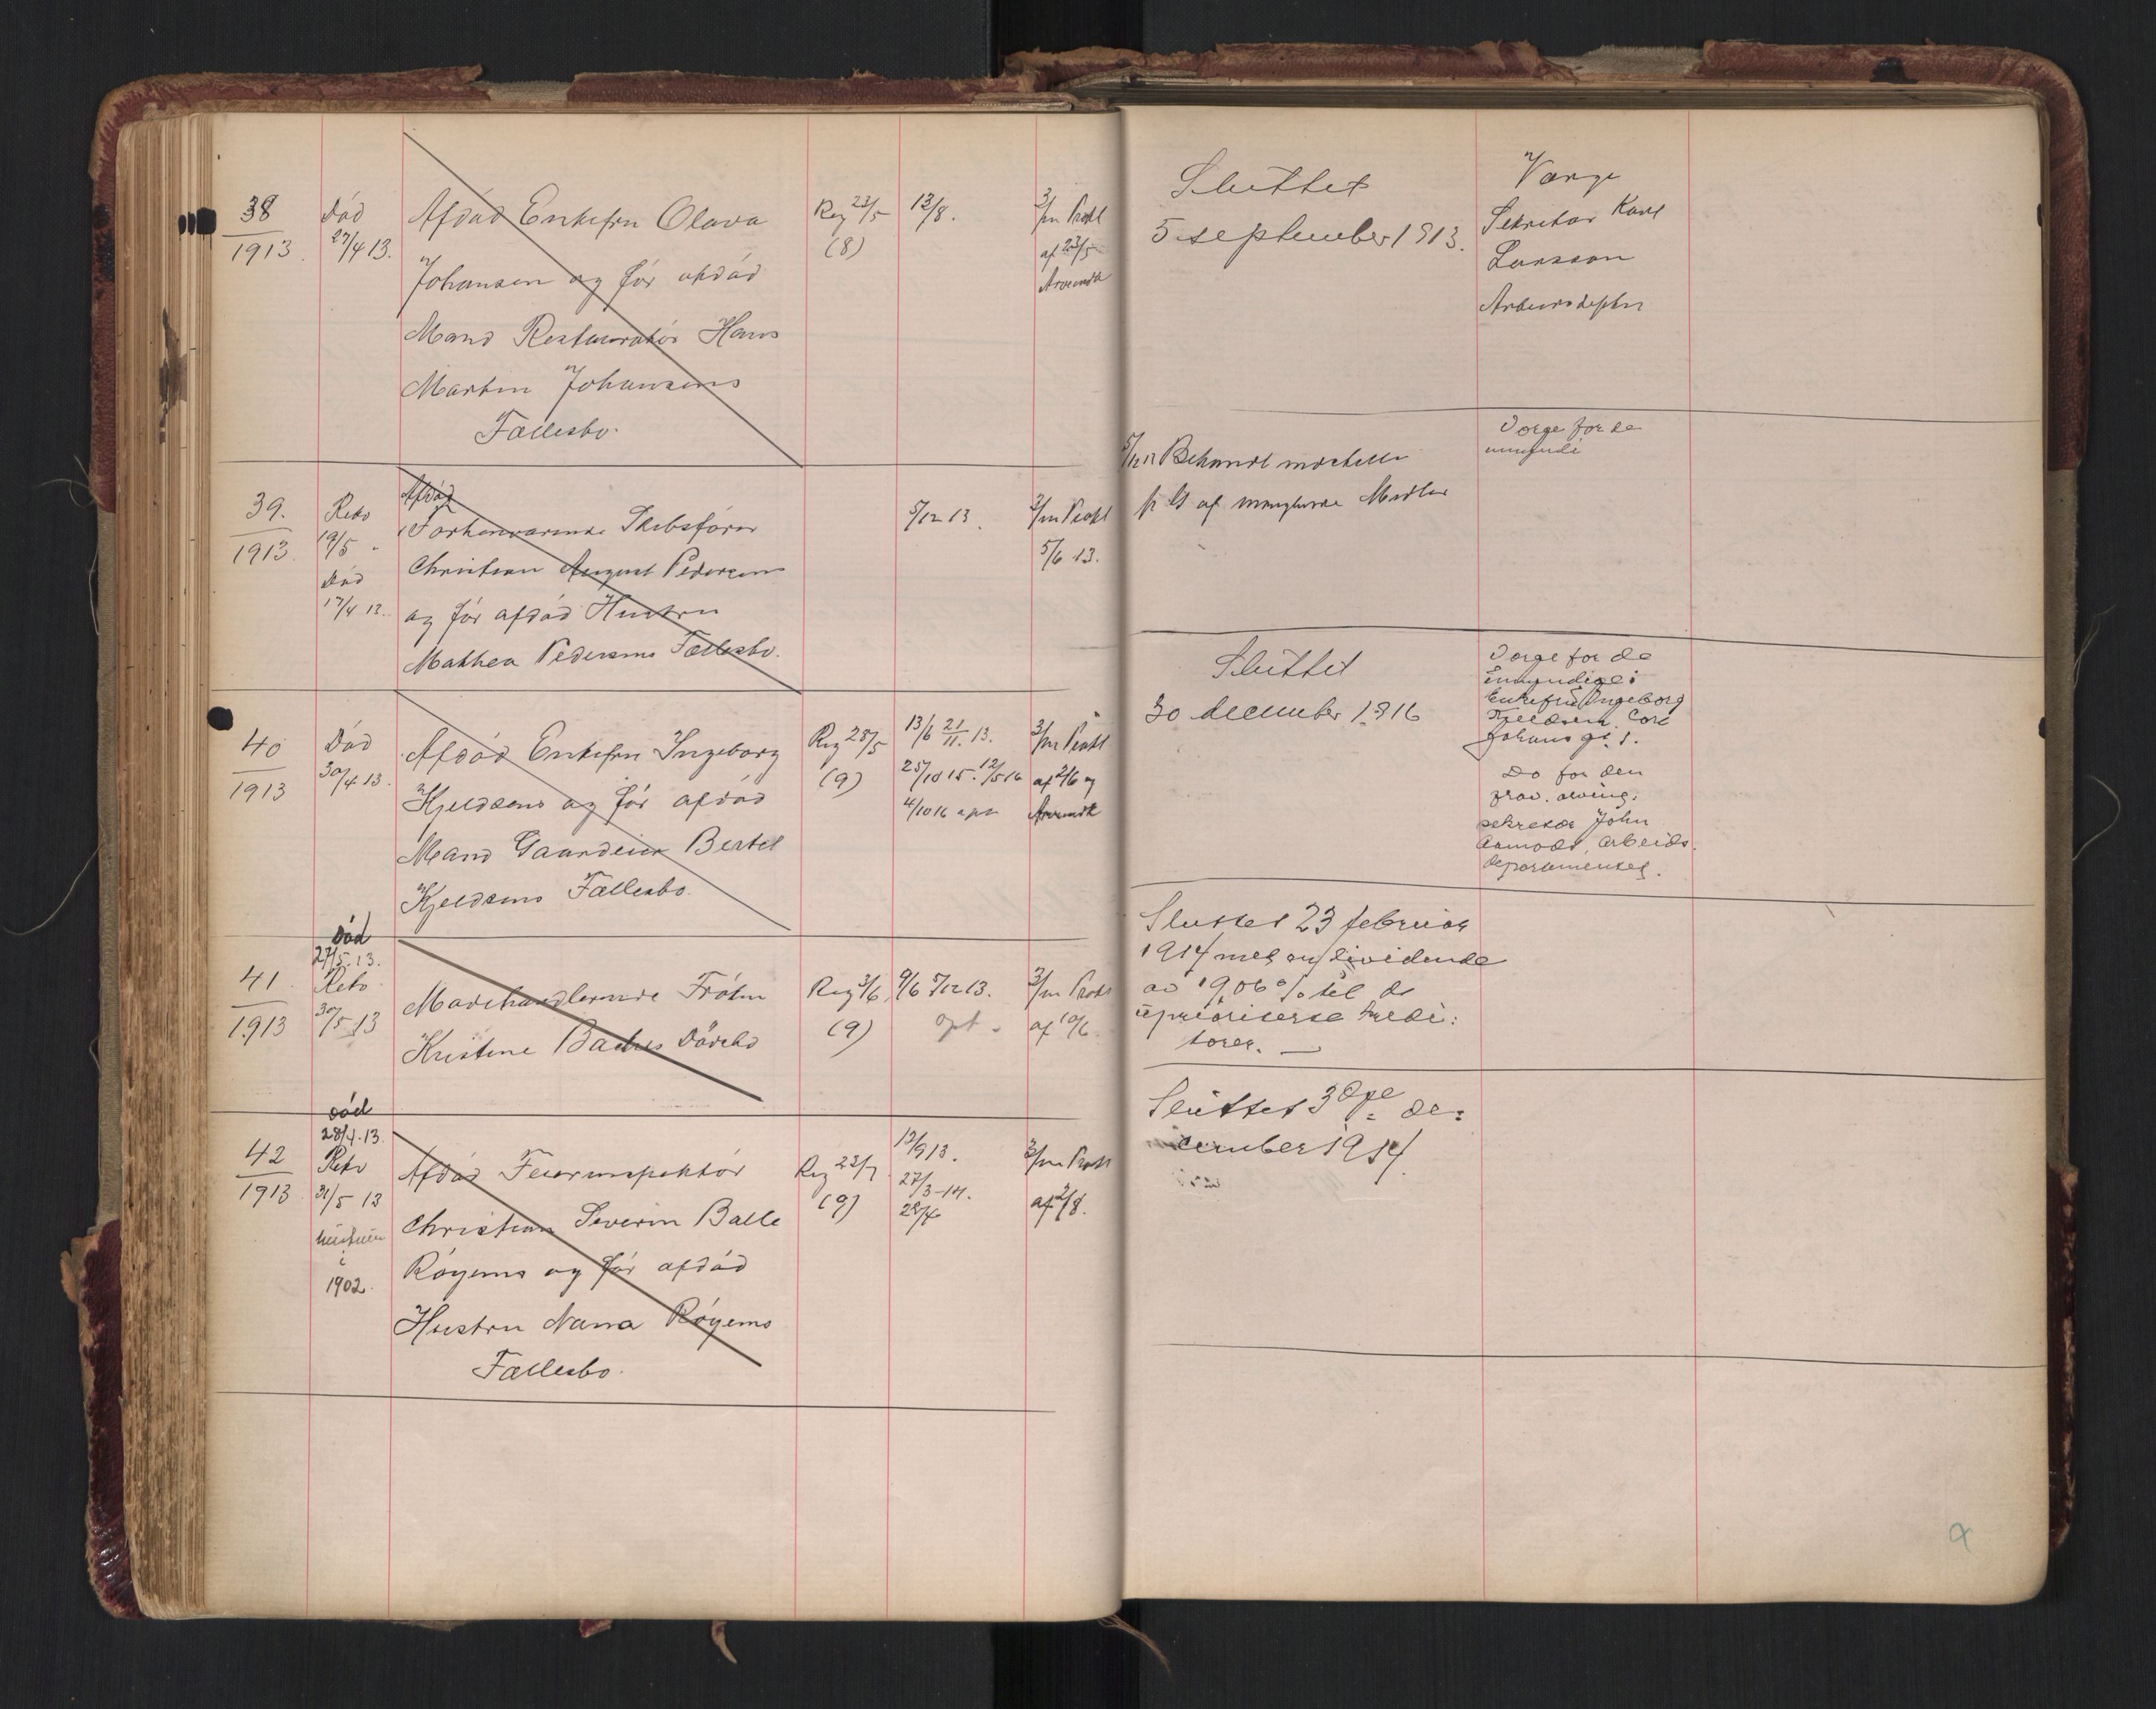 38
1913
Död
27/4 13.
Afdöd Enkefru Olava
Johansen og før afdöd
Mand Restauratör Hans
Martin Johansens
Fællesbo.
Reg 23/5
(8)
13/8.
3/m Prokl
af 23/5
Sluttet
5 september 1913.
Værge
Sekretær Karl
Larsson
39.
1913.
Rekv
19/5
Död
17/4 13.
Afdöd
Forhenværende Skibsfører
Christian August Pedersens
og før afdöd Hustru
Mathea Pedersens Fællesbo.
5/12 13.
3/m Prokl
5/6 13.
Behandl indstillet
af manglende Midler
Værge for de
40
1913
Död
30/4 13.
Afdöd Enkefru Ingeborg
Kjeldsens og før afdöd
Mand Gaardeier Bertel
Kjeldsens Fællesbo.
Reg 28/5
(9)
13/6 21/11. 13.
25/10 15. 12/5 16
4/10 16
3/m Prokl
af 2/6 og
Sluttet
30 december 1916
Værge for de
umyndige:
Enkefru Ingeborg
Kjeldsen, Carl
Johans gt. 1.
Do for den
frav. arving:
sekretær John
Aamodt, Arbeids-
departementet.
41.
1913
död
27/5. 13.
Rekv
30/5 13
Modehandlerinde Frøken
Kristine Baches Dödsbo
Reg 3/6
(9)
9/6 5/12 13.
opt.
3/m Prokl
af 10/6
Sluttet 23 februar
1914 med en dividende
av 19,06 % til de
uprioriterte kredi:
torer. —
42
1913
död
28/4. 13.
Rekv
31/5 13
hustruen
i
1902.
Afdöd Feierinspektör
Christian Severin Balle
Röyems og før afdöd
Hustru Nanna Röyems
Fællesbo.
Reg 23/7
(9)
12/9 13.
27/3-14.
3/m Prokl
af 2/8.
Sluttet 3dje de:
cember 1914.